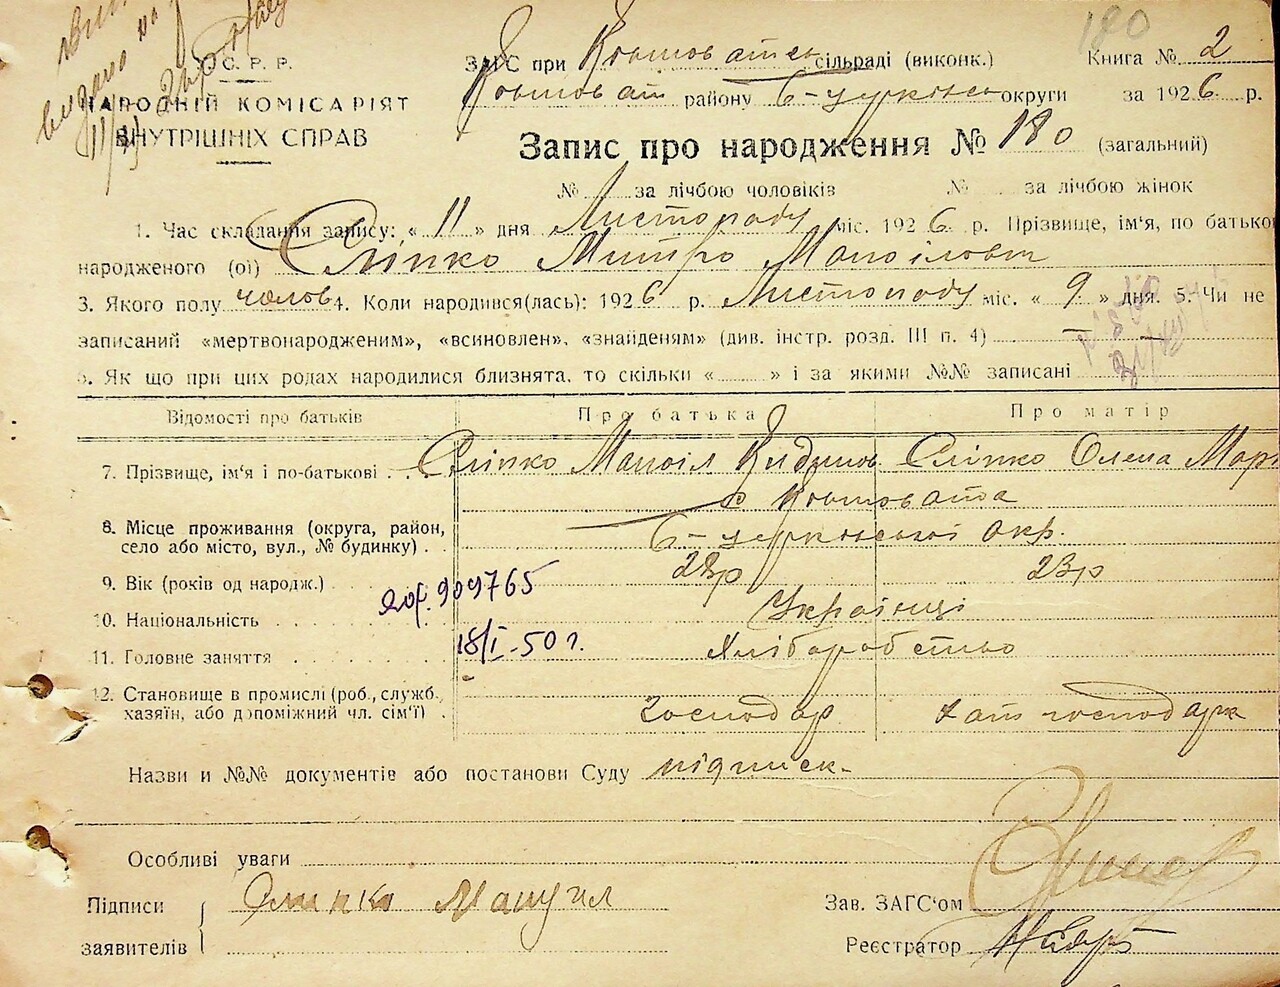 180
С. Р. Р.
НАРОДНІЙ КОМІСАРІЯТ
ВНУТРІШНІХ СПРАВ
видано
ЗАГС при Ковшоватськ сільраді (виконк.) Книга № 2
Ковшоват району Б-церківськ округи за 1926 р.
Запис про народження № 180 (загальний)
№ за лічбою чоловіків № за лічбою жінок
1. Час складання запису: « 11 » дня Листопаду міс. 1926 р. Прізвище, ім'я, по батьков
народженого (ої) Сліпко Митро Маноілович
3. Якого полу чолов 4. Коли народився(лась): 1926 р. Листопаду міс. « 9 » дня. 5. Чи не
записаний «мертвонародженим», «всиновлен», «знайденям» (див. інстр. розд. III п. 4) —
6. Як що при цих родах народилися близнята, то скільки « » і за якими №№ записані
Відомості про батьків Про батька Про матір
7. Прізвище, ім'я і по-батькові Сліпко Маноіл Сліпко Олена Мар
с Ковшовата
8. Місце проживання (округа, район,
село або місто, вул., № будинку) Б-церківської окр.
9. Вік (років од народж.) 28р 23р
909765
10. Національність Українці
18/I-50 г.
11. Головне заняття Хліборобство
12. Становище в промислі (роб., служб.,
хазяїн, або допоміжний чл. сім'ї) господар господарка
Назви и №№ документів або постанови Суду підписк.
Особливі уваги
Підписи
заявителів
Слипко Мануил
Зав. ЗАГС'ом
Реєстратор